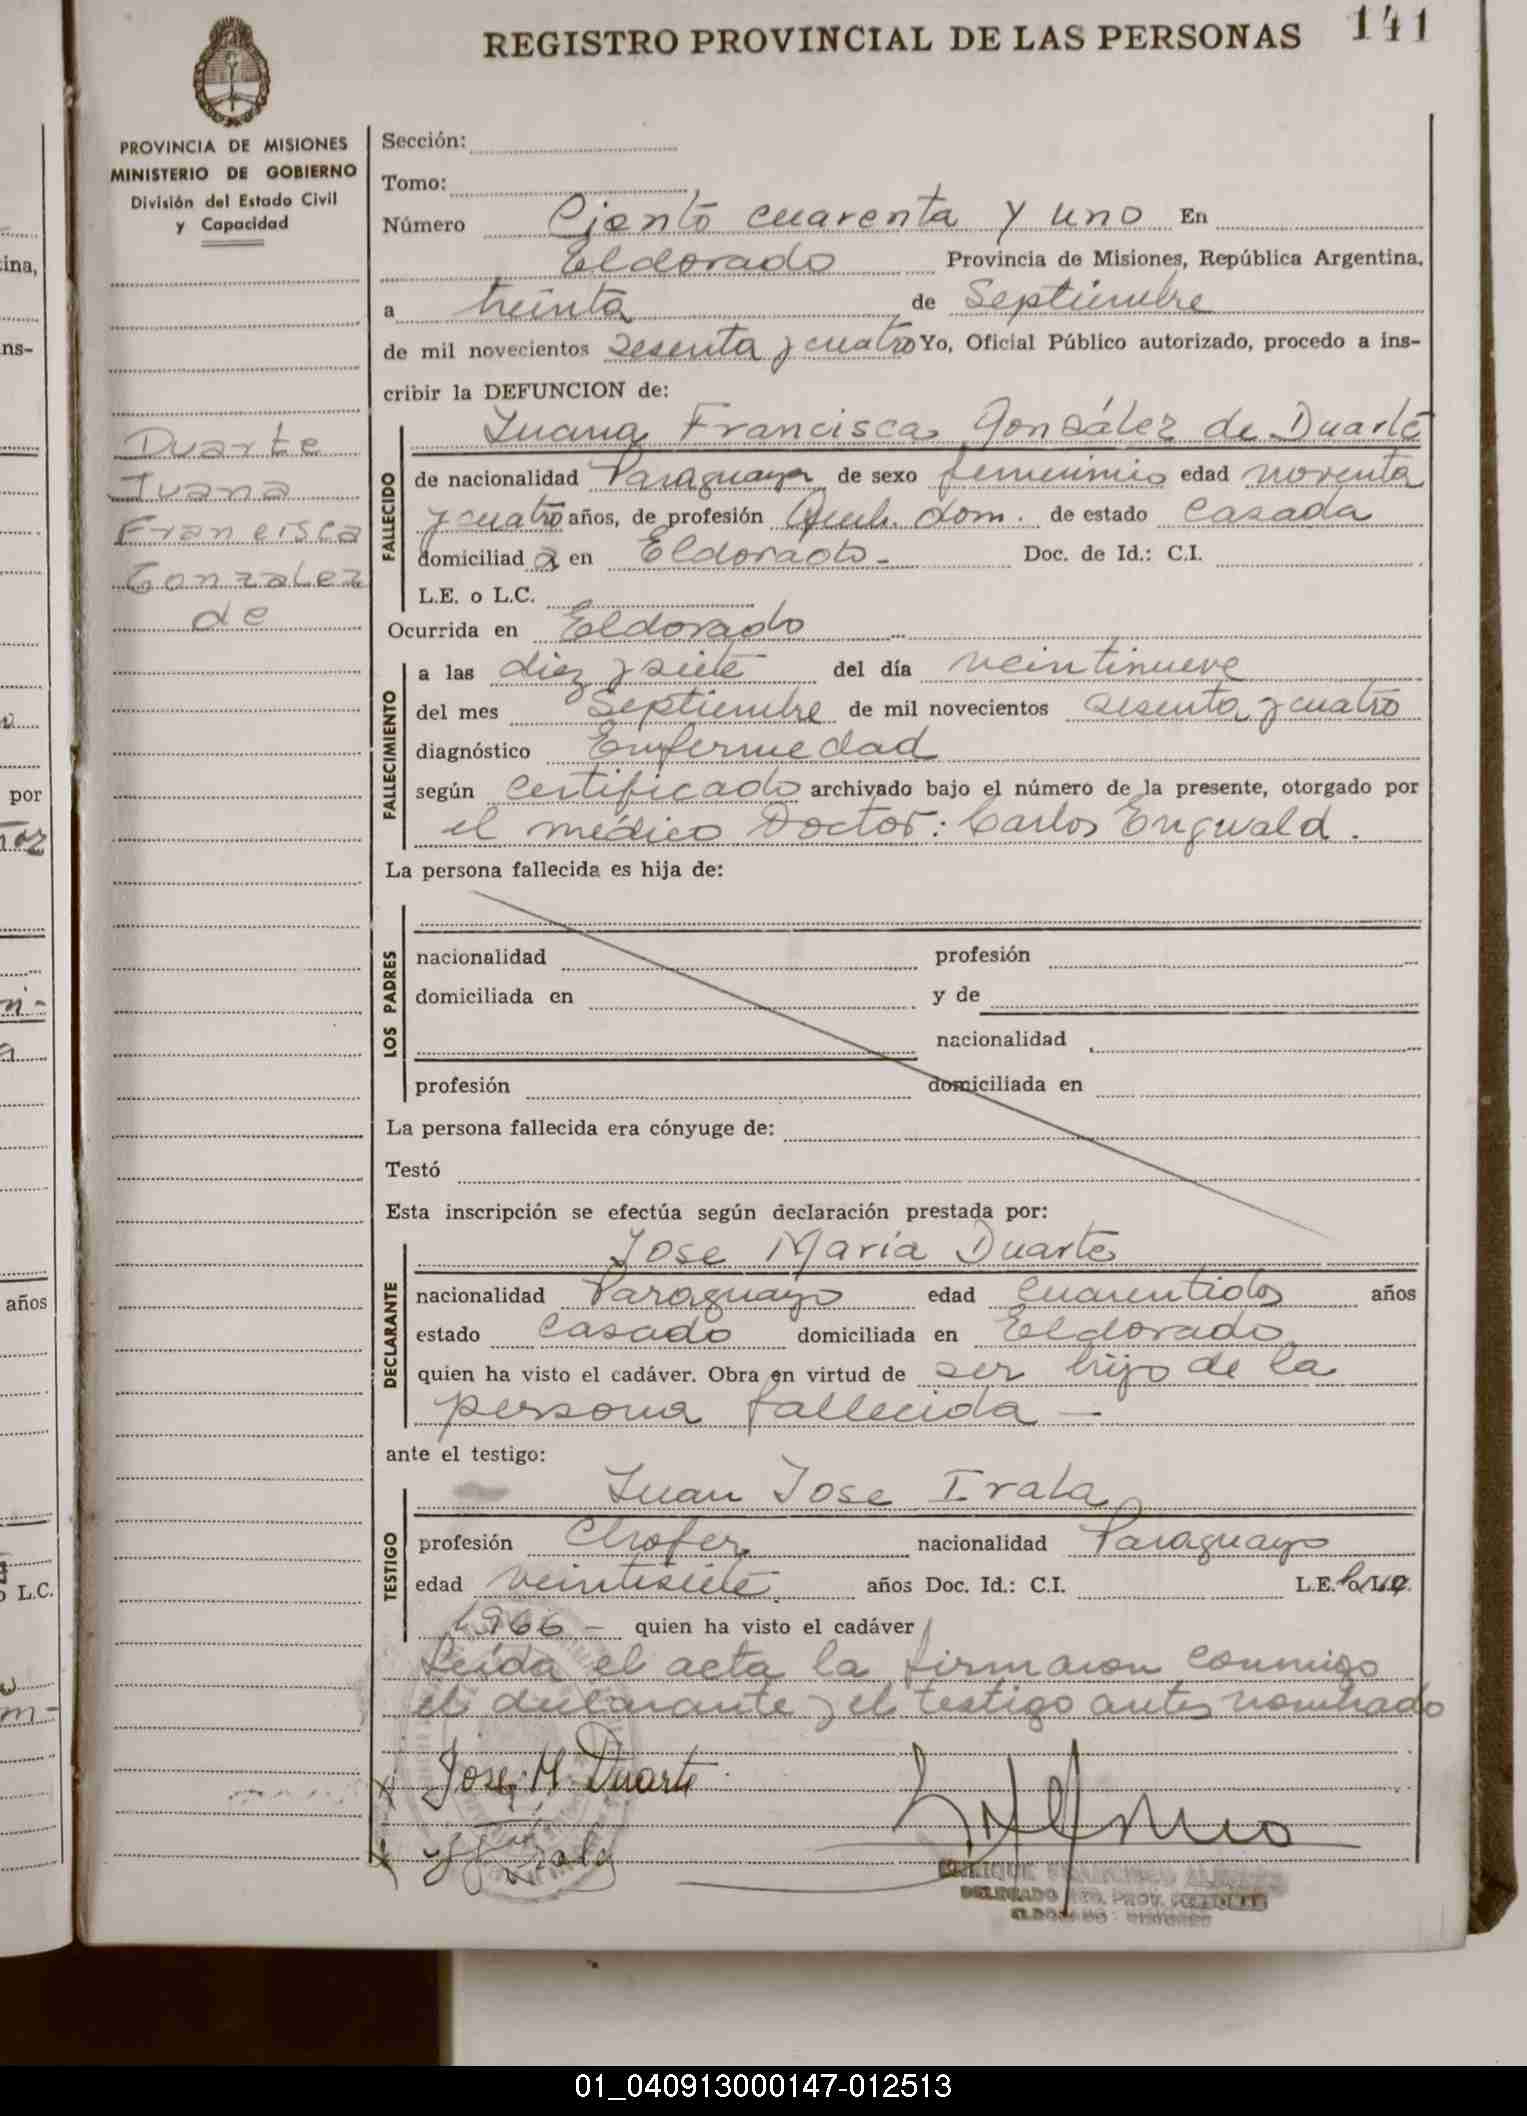 REGISTRO PROVINCIAL DE LAS PERSONAS 141
PROVINCIA DE MISIONES
MINISTERIO DE GOBIERNO
División del Estado Civil
y Capacidad
Duarte
Juana
Francisca
Gonzalez
de
Sección:
Tomo:
Número Ciento cuarenta y uno En
Eldorado Provincia de Misiones, República Argentina,
a treinta de Septiembre
de mil novecientos sesenta y cuatro Yo, Oficial Público autorizado, procedo a ins-
cribir la DEFUNCION de:
FALLECIDO
Juana Francisca González de Duarte
de nacionalidad Paraguaya de sexo femenino edad noventa
y cuatro años, de profesión Queh. dom. de estado Casada
domiciliad a en Eldorado- Doc. de Id.: C.I.
L.E. o L.C.
Ocurrida en Eldorado
FALLECIMIENTO
a las diez y siete del día veintinueve
del mes Septiembre de mil novecientos sesenta y cuatro
diagnóstico Enfermedad
según certificado archivado bajo el número de la presente, otorgado por
el médico Doctor: Carlos Engwald.
La persona fallecida es hija de:
LOS PADRES
nacionalidad profesión
domiciliada en y de
nacionalidad
profesión domiciliada en
La persona fallecida era cónyuge de:
Testó
Esta inscripción se efectúa según declaración prestada por:
DECLARANTE
Jose Maria Duarte
nacionalidad Paraguayo edad cuarentidos años
estado Casado domiciliada en Eldorado
quien ha visto el cadáver. Obra en virtud de ser hijo de la
persona fallecida -
ante el testigo:
TESTIGO
Juan Jose Irala
profesión Chofer nacionalidad Paraguayo
edad veintisiete años Doc. Id.: C.I. L.E. o L.C.
1966 - quien ha visto el cadáver
Leida el acta la firmaron conmigo
el declarante y el testigo antes nombrado
Jose M. Duarte
ENRIQUE FRANCISCO
DELEGADO REG. PROV.
ELDORADO - MISIONES
ina,
ns-
por
años
L.C.
01_040913000147-012513